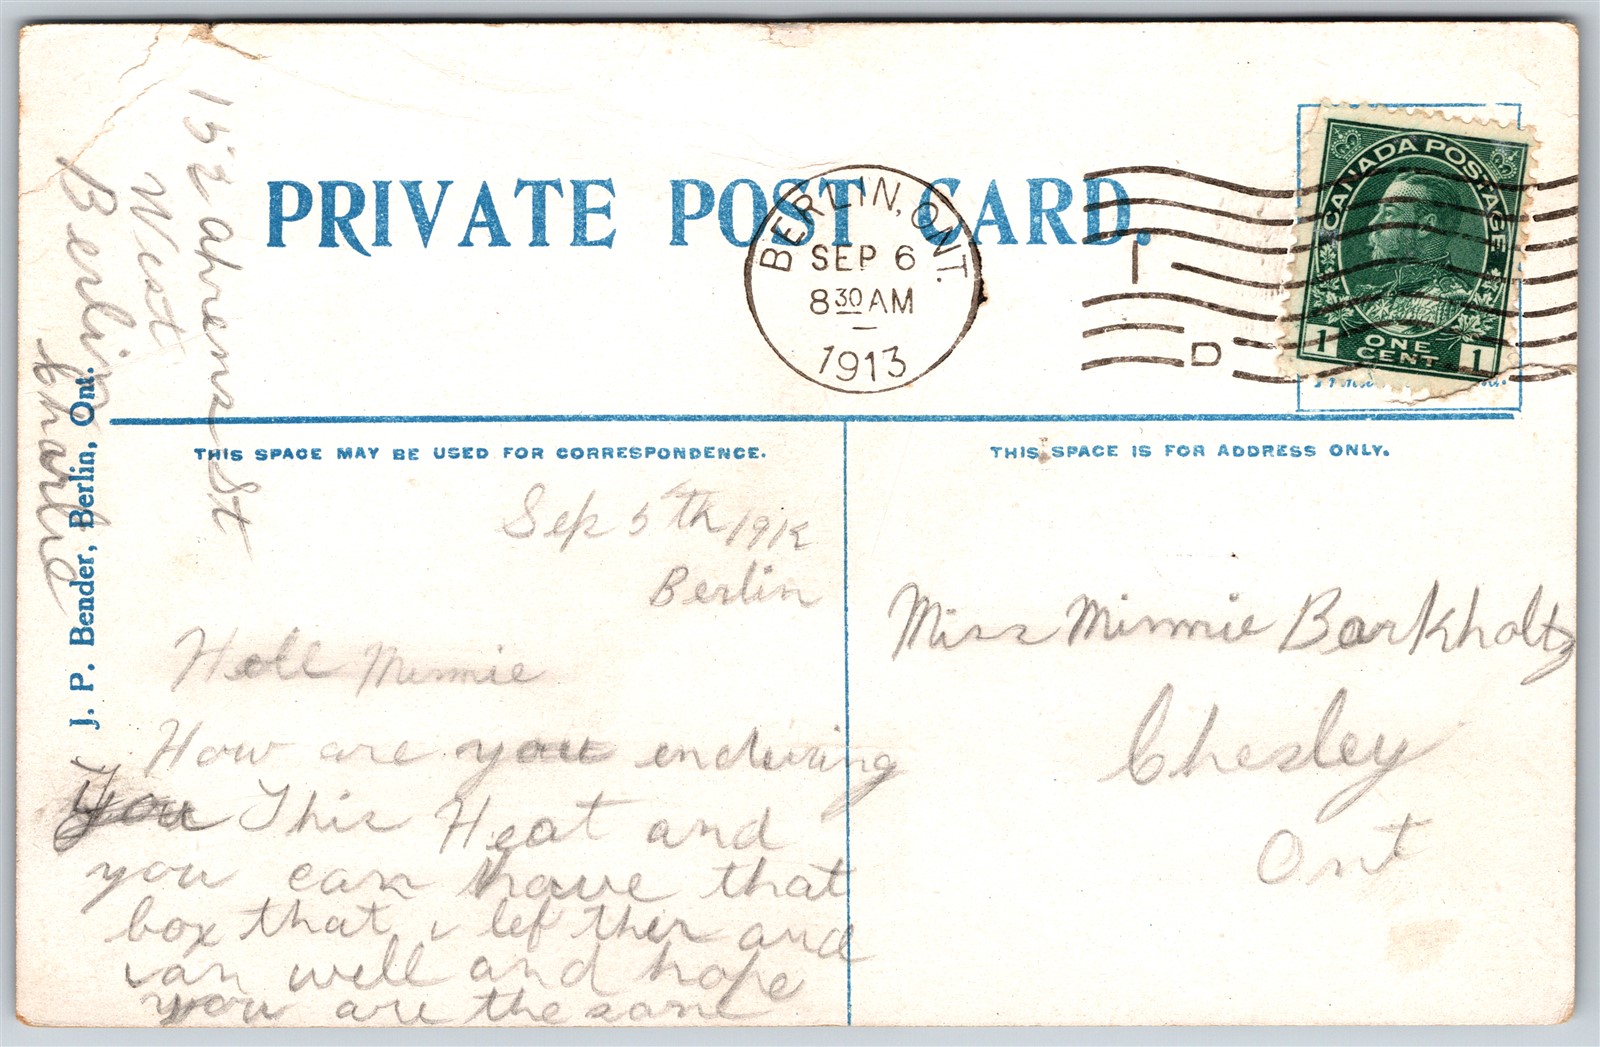 PRIVATE POST CARD.
BERLIN, ONT.
SEP 6
8 30 AM
1913
I
D
CANADA POSTAGE
1 ONE CENT 1
THIS SPACE MAY BE USED FOR CORRESPONDENCE.
THIS SPACE IS FOR ADDRESS ONLY.
J. P. Bender, Berlin, Ont.
152 Ahrens St
West
Berlin
Charlie
Sep 5th 1912
Berlin
Hell Minnie
How are you enduring
you This Heat and
you can have that
box that i lef ther and
van well and hope
you are the same
Miss Minnie Barkholtz
Chesley
Ont